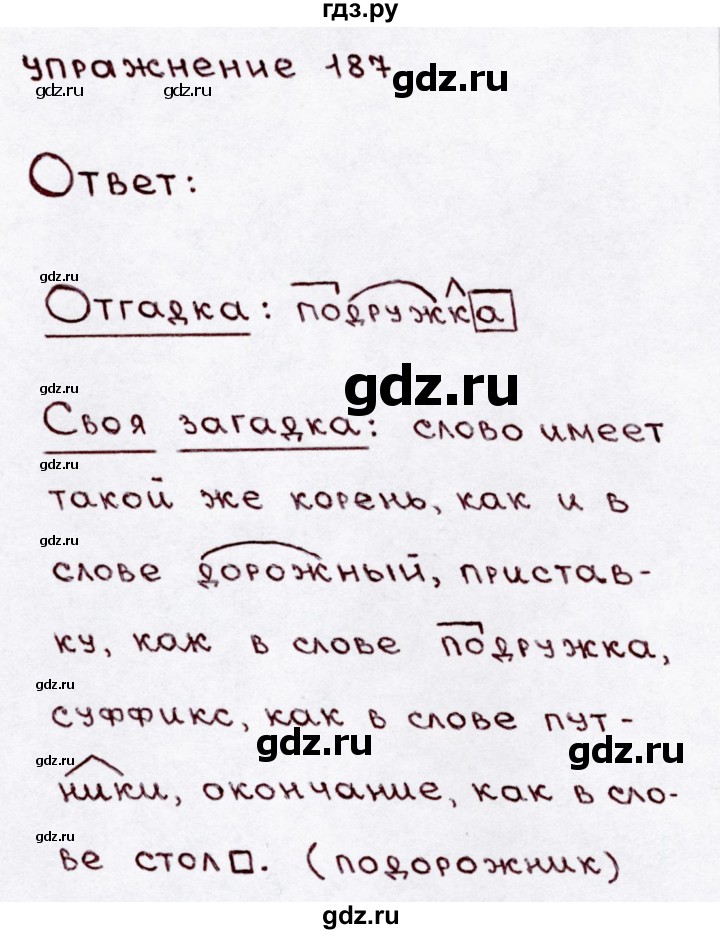 гдз.ру
упражнение 187
gdz.ru
gdz.ru gdz.ru
Ответ:
gdz.ru
Отгадка: подружка
gdz.ru
gdz.ru
Своя загадка: слово имеет
gdz.ru
такой же корень, как и в
gdz.ru
слове дорожный, пристав-
ку, как в слове подружка,
gdz.ru
суффикс, как в слове пут-
gdz.ru
gdz.ru
gdz.ru
ники, окончание, как в сло-
gdz.ru
ве стол□. (подорожник)
gdz.ru